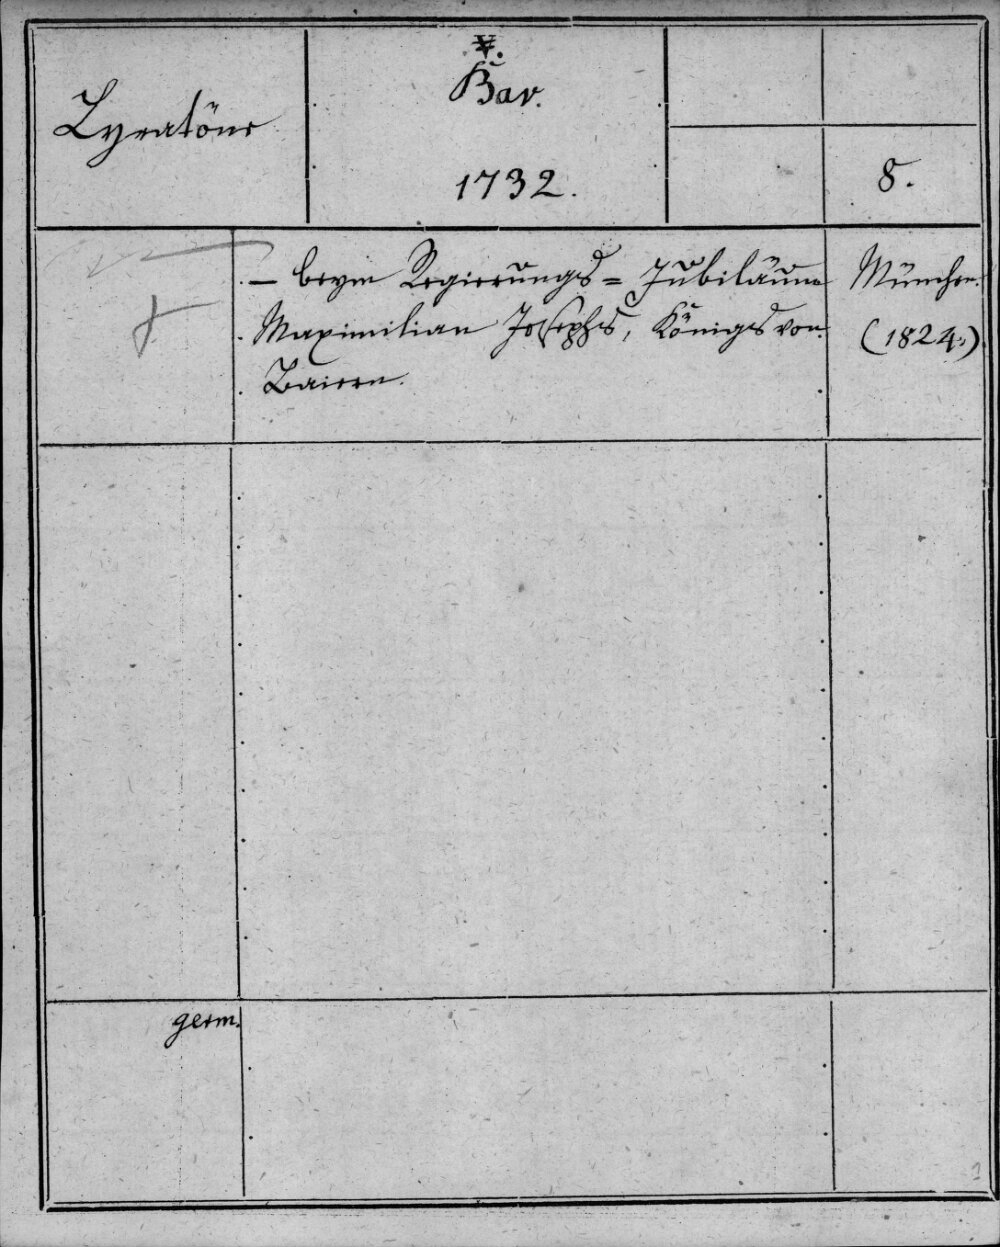 Lyratöne
Bav.
1732.
8.
— beym Regierungs=Jubiläum
Maximilian Josephs, Königs von
Baiern.
München.
(1824.)
germ.